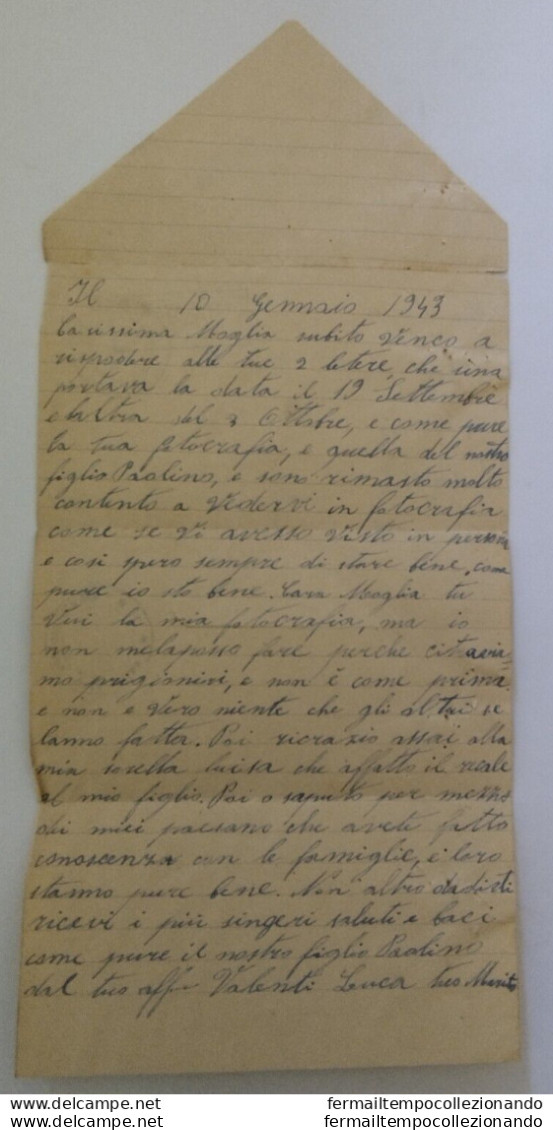 Il 10 Gennaio 1943
Carissima Moglia subito venco a
rispodere alle tue 2 letere, che una
portava la data il 19 Settembre
e laltra del 3 Ottobre, e come pure
la tua fotocrafia, e quella del nostro
figlio Paolino, e sono rimasto molto
contento a vedervi in fotocrafia
come se vi avesso visto in persona
e cosi spero sempre di stare bene, come
pure io sto bene. Cara Moglia tu
vuoi la mia fotocrafia, ma io
non melaposso fare perche ci
mo prigionieri, e non è come prima
e non e vero niente che gli altri se
lanno fatta. Poi ricrazio assai alla
mia sorella luisa che affatto il recale
al mio figlio. Poi o saputo per mezzo
di miei paesano che avete fatto
conoscenza con le famiglie, e loro
stanno pure bene. Non altro dadirti
ricevi i più singeri saluti e baci
come pure il nostro figlio Paolino
dal tuo aff Valenti Luca tuo Marito
fermailtempocollezionando.com
fermailtempocollezionando.com